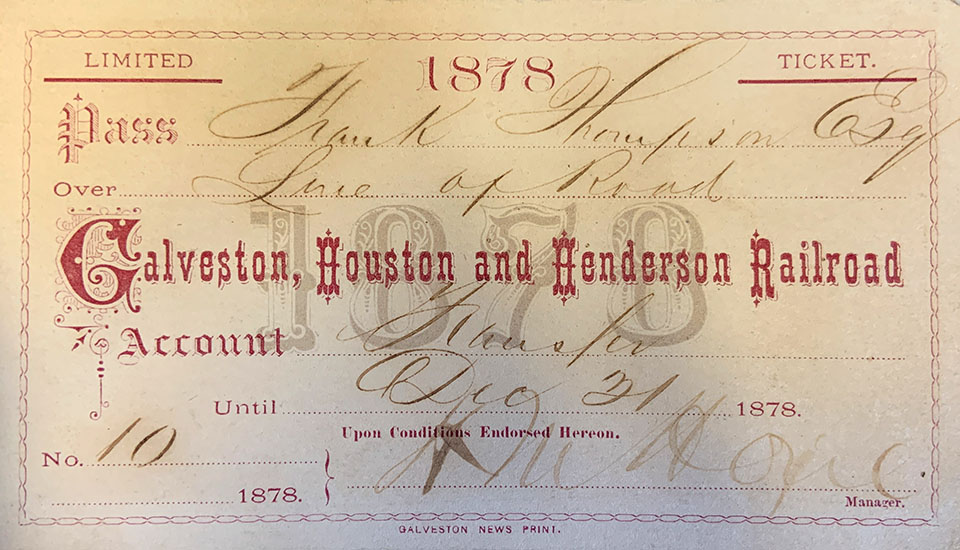 LIMITED 1878 TICKET.
Pass Frank Thompson Esq
Over Line of Road
1878
Galveston, Houston and Henderson Railroad
Account Transfer
Until Dec 31 1878.
Upon Conditions Endorsed Hereon.
No. 10
1878.
H M Hoxie
Manager.
GALVESTON NEWS PRINT.